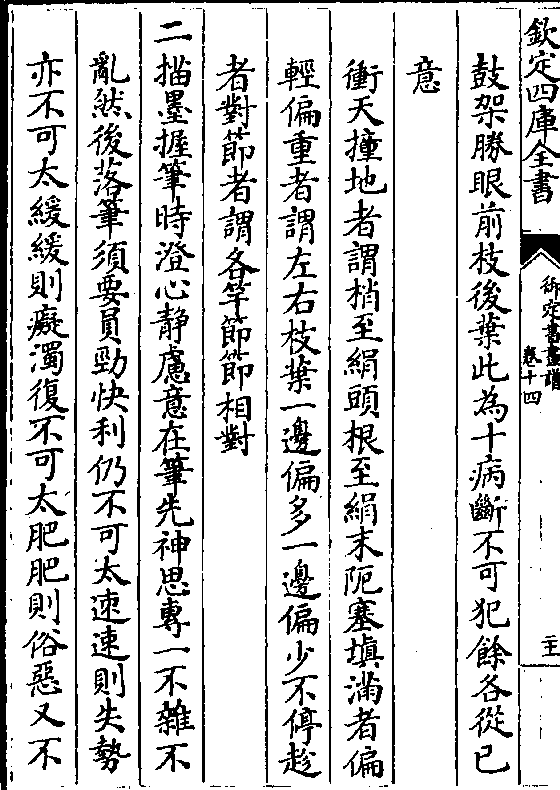 欽定四庫全書
御定書畫譜
卷十四
鼓架勝眼前枝後葉此為十病斷不可犯餘各從已
意
衝天撞地者謂梢至絹頭根至絹末阨塞填滿者偏
輕偏重者謂左右枝葉一邊偏多一邊偏少不停趁
者對節者謂各竿節節相對
二描墨握筆時澄心静慮意在筆先神思專一不雜不
亂然後落筆須要員勁快利仍不可太速速則失勢
亦不可太緩緩則癡濁復不可太肥肥則俗惡又不